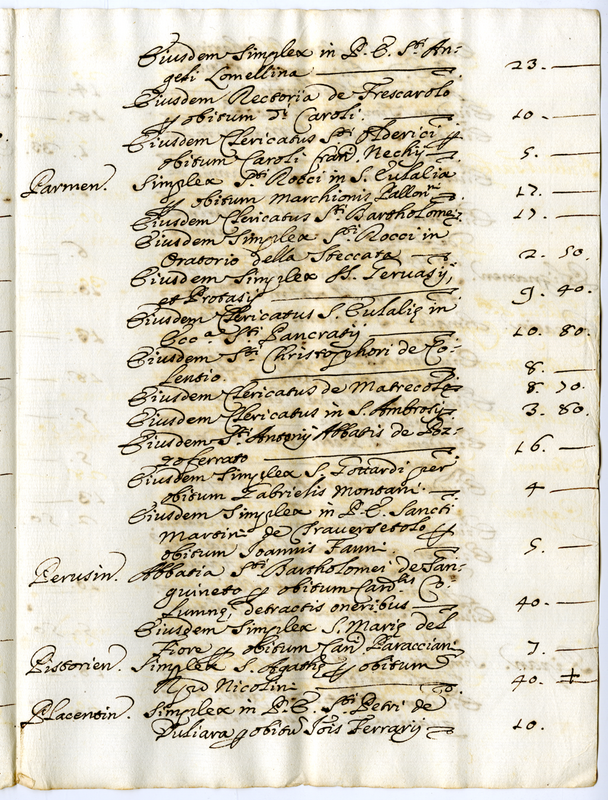 Eiusdem Simplex in P. E. Sti An-
geli Lomellina 23. —
Eiusdem Rectoria de Frescarolo
p obitum D. Caroli 10 —
Eiusdem Clericatus Sti Alderici p
obitum Caroli Nechij 5. —
Parmen. Simplex Sti Rocci in S. Eulalia
p obitum Marchionis Pallon 17. —
Eiusdem Clericatus Sti Bartholomei 17. —
Eiusdem Simplex Sti Rocci in
Oratorio della Steccata 2. 50.
Eiusdem Simplex SS. Geruasij,
et Protasij 9. 40.
Eiusdem Clericatus S. Eulalię in
Ecca Sti Pancratij 10. 80.
Eiusdem Sti Christophori de Co-
lentio. 8. —
Eiusdem Clericatus de Matrecole 8. 70.
Eiusdem Clericatus in S. Ambrosij 3. 80.
Eiusdem Sti Antonij Abbatis de Poz-
zoferrato 16. —
Eiusdem Simplex S. Gottardi per
obitum Gabrielis Montani 4 —
Eiusdem Simplex in P. E. Sancti
Martini de Trauersetolo p
obitum Joannis Fanni 5. —
Perusin. Abbatia Sti Bartholomei de San-
guineto p obitum Cardlis Co-
lumnę, detractis oneribus 40. —
Eiusdem Simplex S. Marię del
Fiore p obitum Car. Paracciani 7. —
Pistorien. Simplex S. Agathę p obitum
Nicolini 40. +
Placentin. Simplex in P. E. Sti Petri de
Duliara p obitu Jois Ferrarij 10.